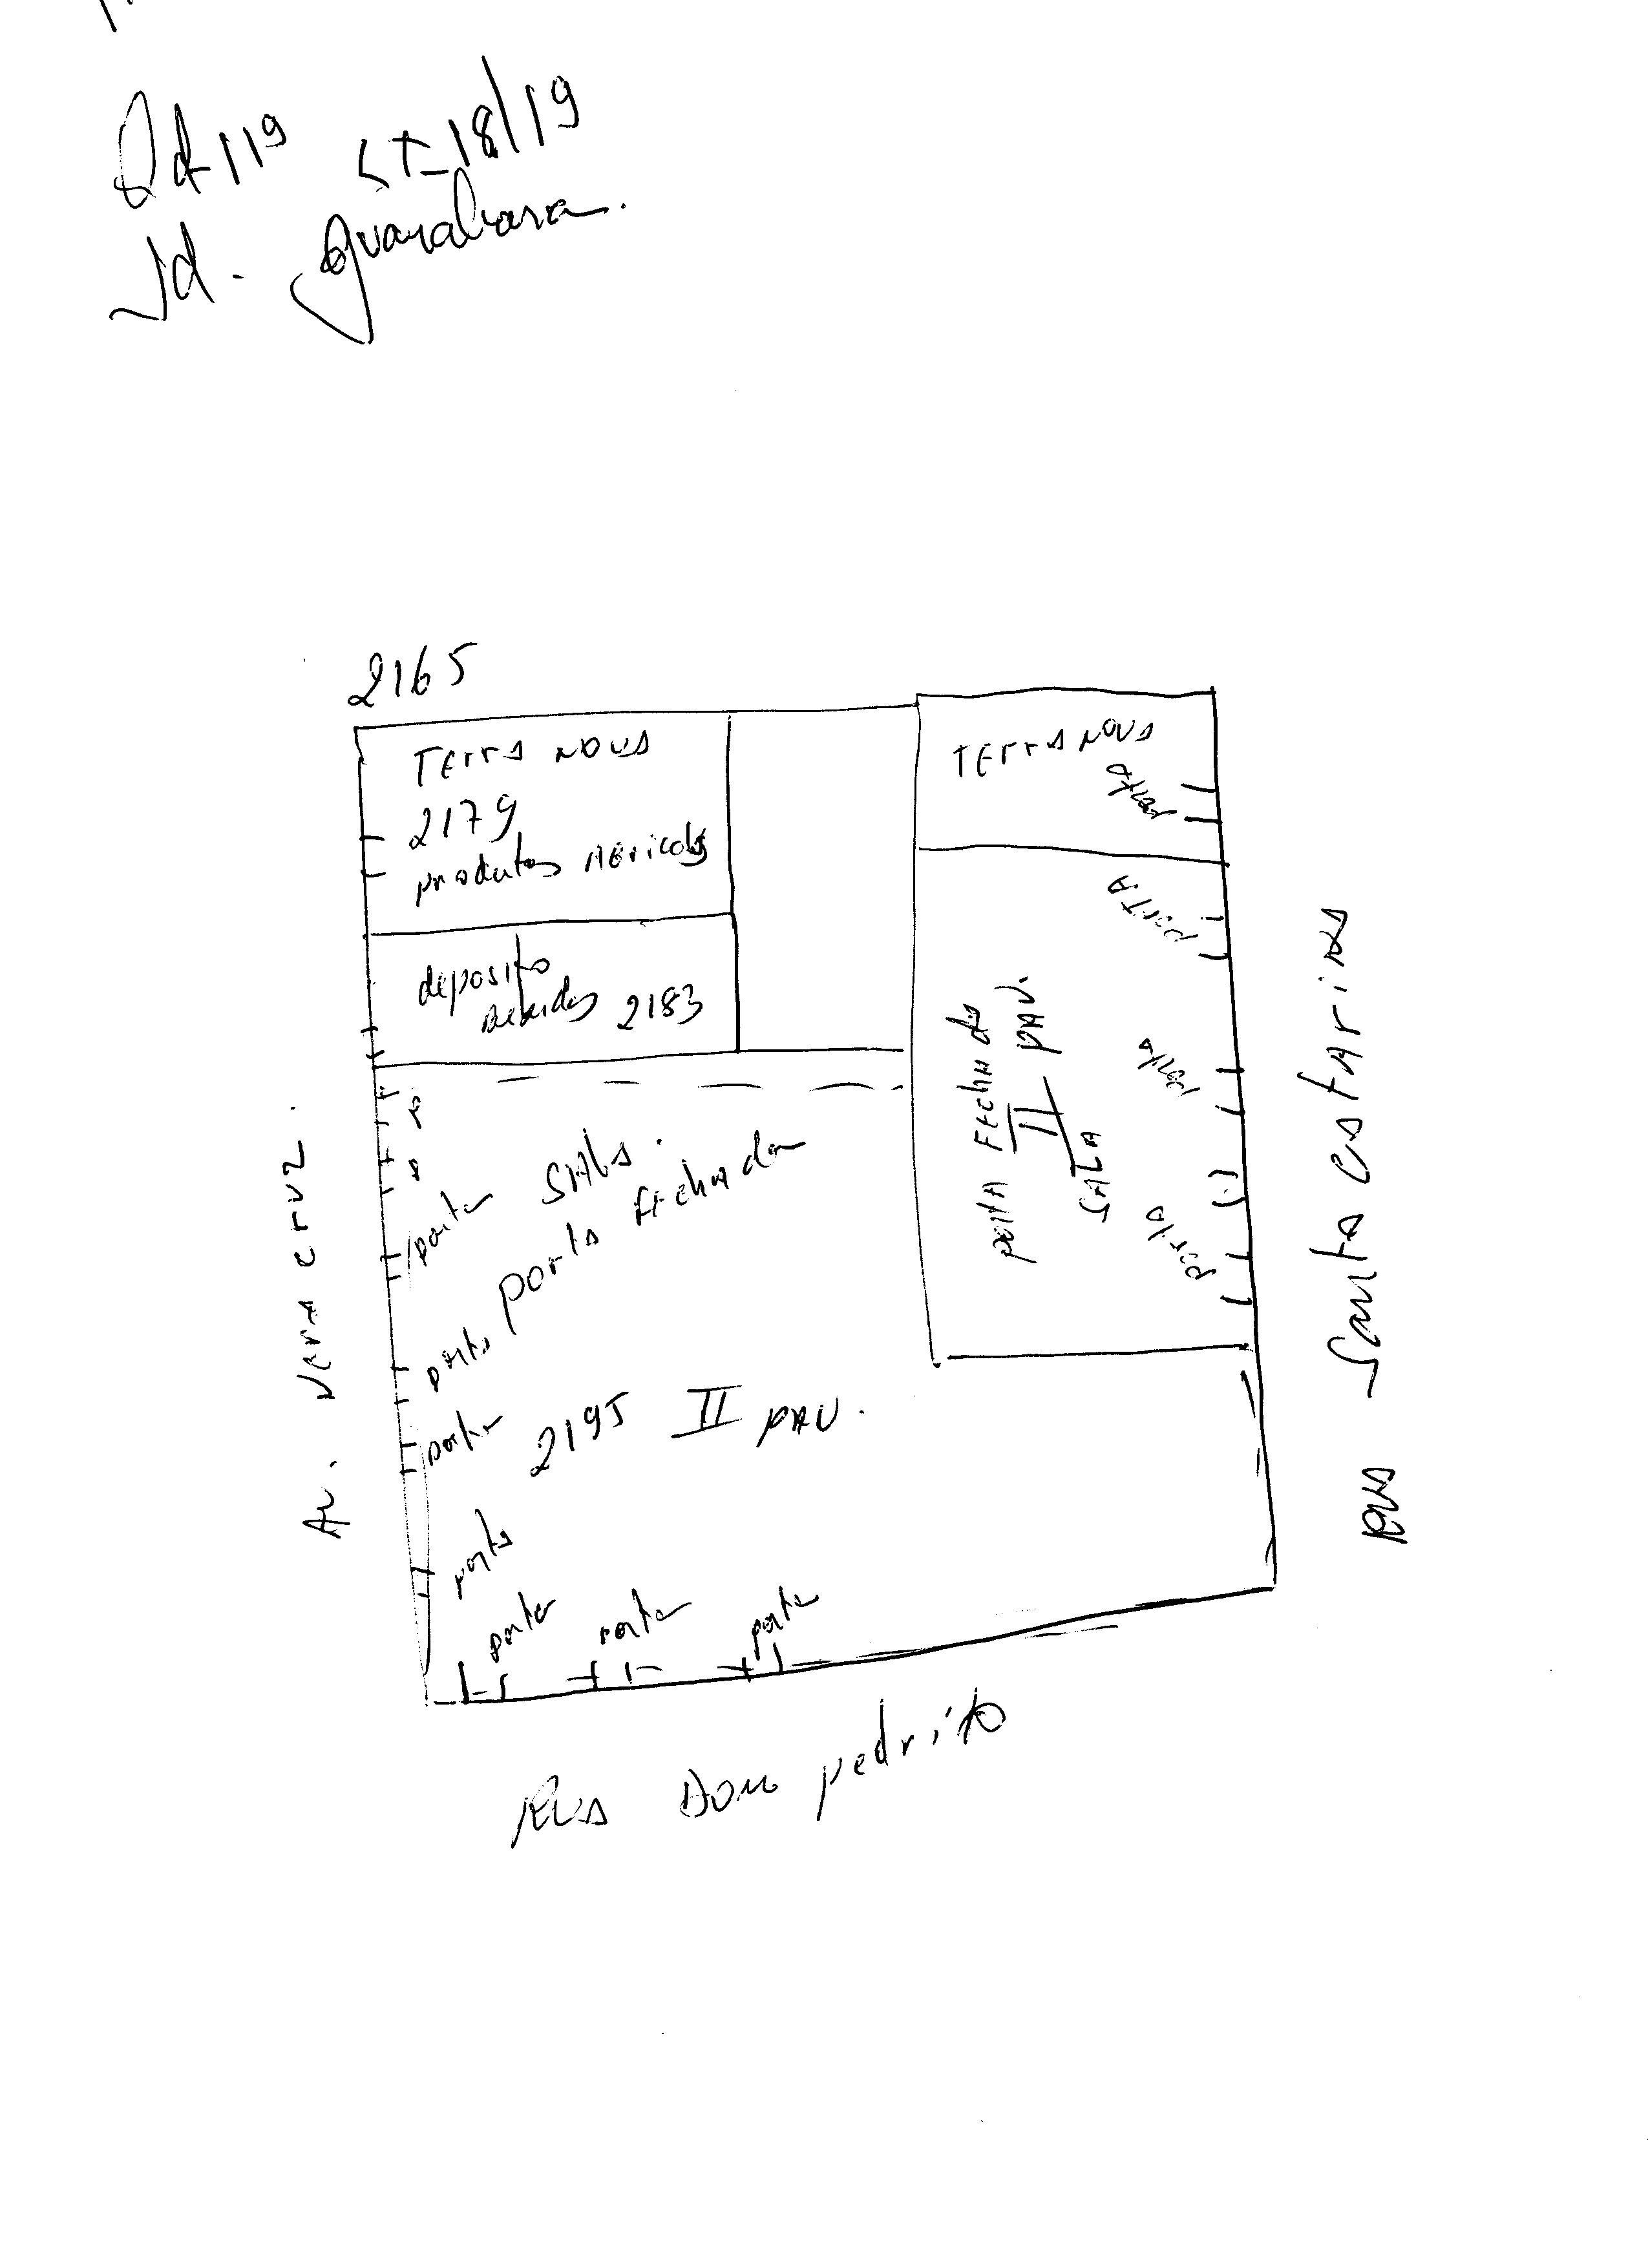 Qd-119 LT-18/19
Jd. Guanabara.
2165
TErrA NOVA
2179
produtos AGricolas
TErrA NOVA
porta
deposito
bebidas 2183
portA
porta
porta
portA FEchAdA
II PAV.
SALA
porta SALAS.
porta FEchada
porta
porta
2195 II PAV.
porta
porta porta porta
Av. Vera cruz.
RUA Santa CatArinA
RUA Dom pedrito